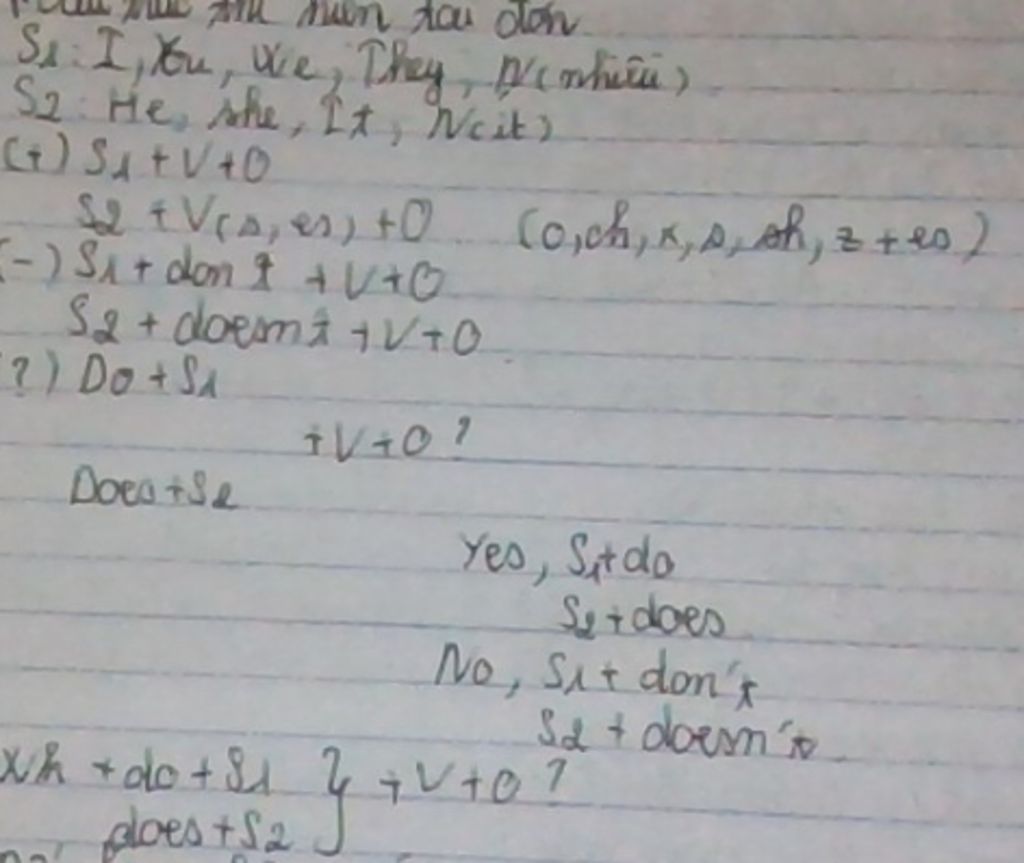 thì hiện tại đơn
S1: I, You, We, They, N(nhiều)
S2: He, she, It, N(ít)
(+) S1 + V + O
S2 + V(s, es) + O (o, ch, x, s, sh, z + es)
(-) S1 + don't + V + O
S2 + doesn't + V + O
?) Do + S1
+ V + O ?
Does + S2
Yes, S1 + do
S2 + does
No, S1 + don't
S2 + doesn't
Wh + do + S1 } + V + O ?
does + S2